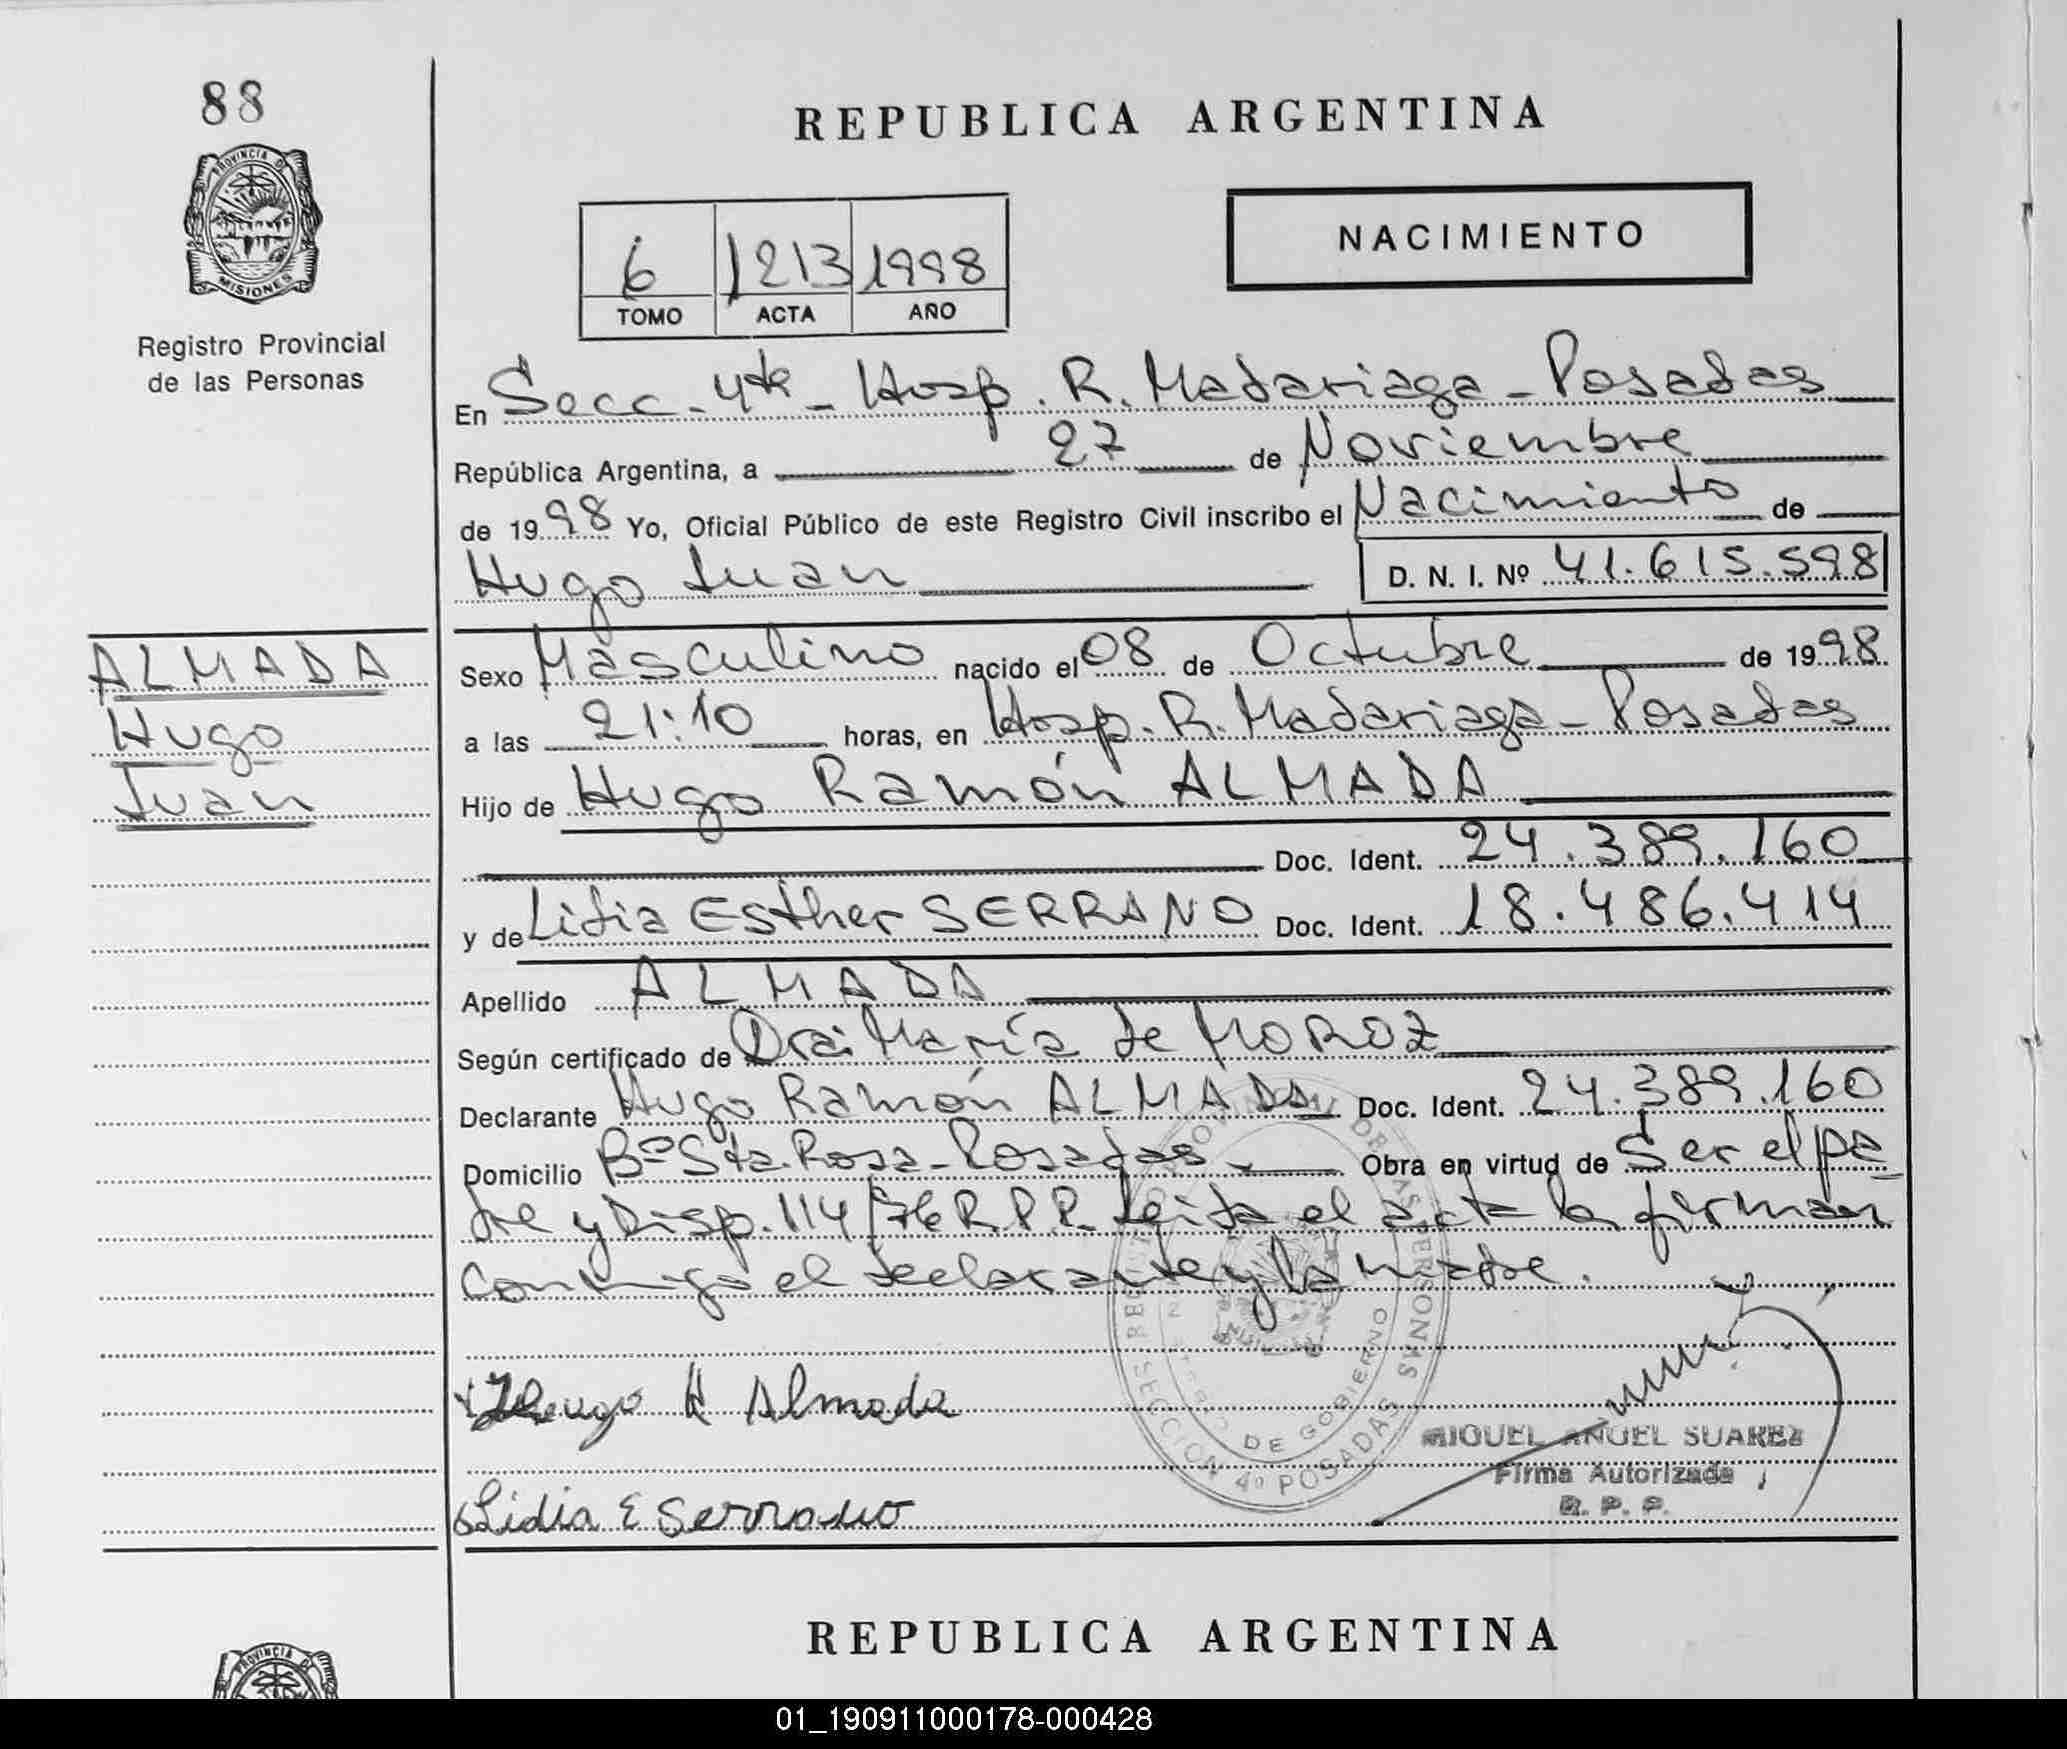 88
PROVINCIA DE
MISIONES
Registro Provincial
de las Personas
REPUBLICA ARGENTINA
6 1213 1998
TOMO ACTA AÑO
NACIMIENTO
En Secc. 4ta - Hosp. R. Madariaga - Posadas
República Argentina, a 27 de Noviembre
de 1998 Yo, Oficial Público de este Registro Civil inscribo el Nacimiento de
Hugo Juan D. N. I. Nº 41.615.598
ALMADA
Hugo
Juan
Sexo Masculino nacido el 08 de Octubre de 1998
a las 21:10 horas, en Hosp. R. Madariaga - Posadas
Hijo de Hugo Ramón ALMADA
Doc. Ident. 24.389.160
y de Lidia Esther SERRANO Doc. Ident. 18.486.414
Apellido ALMADA
Según certificado de Dra: María de MOROZ
Declarante Hugo Ramón ALMADA Doc. Ident. 24.389.160
Domicilio Bº Sta. Rosa - Posadas - Obra en virtud de Ser el pa
dre y Disp. 114/76 R.P.P. Leída el acta la firman
conmigo el declarante y la madre.
Hugo R Almada
Lidia E Serrano
SECCION 4º POSADAS
DE GOBIERNO
MIGUEL ANGEL SUAREZ
Firma Autorizada
R. P. P.
REPUBLICA ARGENTINA
PROVINCIA DE
01_190911000178-000428